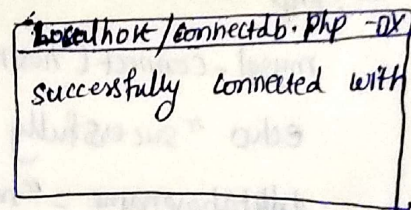 localhost/connectdb.php -OX
successfully connected with